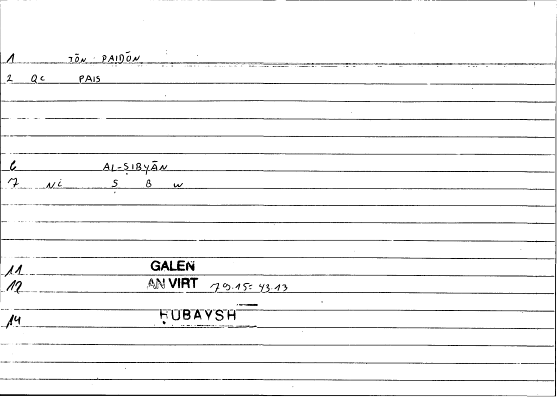 1 TŌN PAIDŌN
2 Qc PAIS
6 AL-ṢIBYĀN
7 Nc Ṣ B W
11 GALEN
12 AN VIRT 79.15 = 43.13
14 ḤUBAYSH